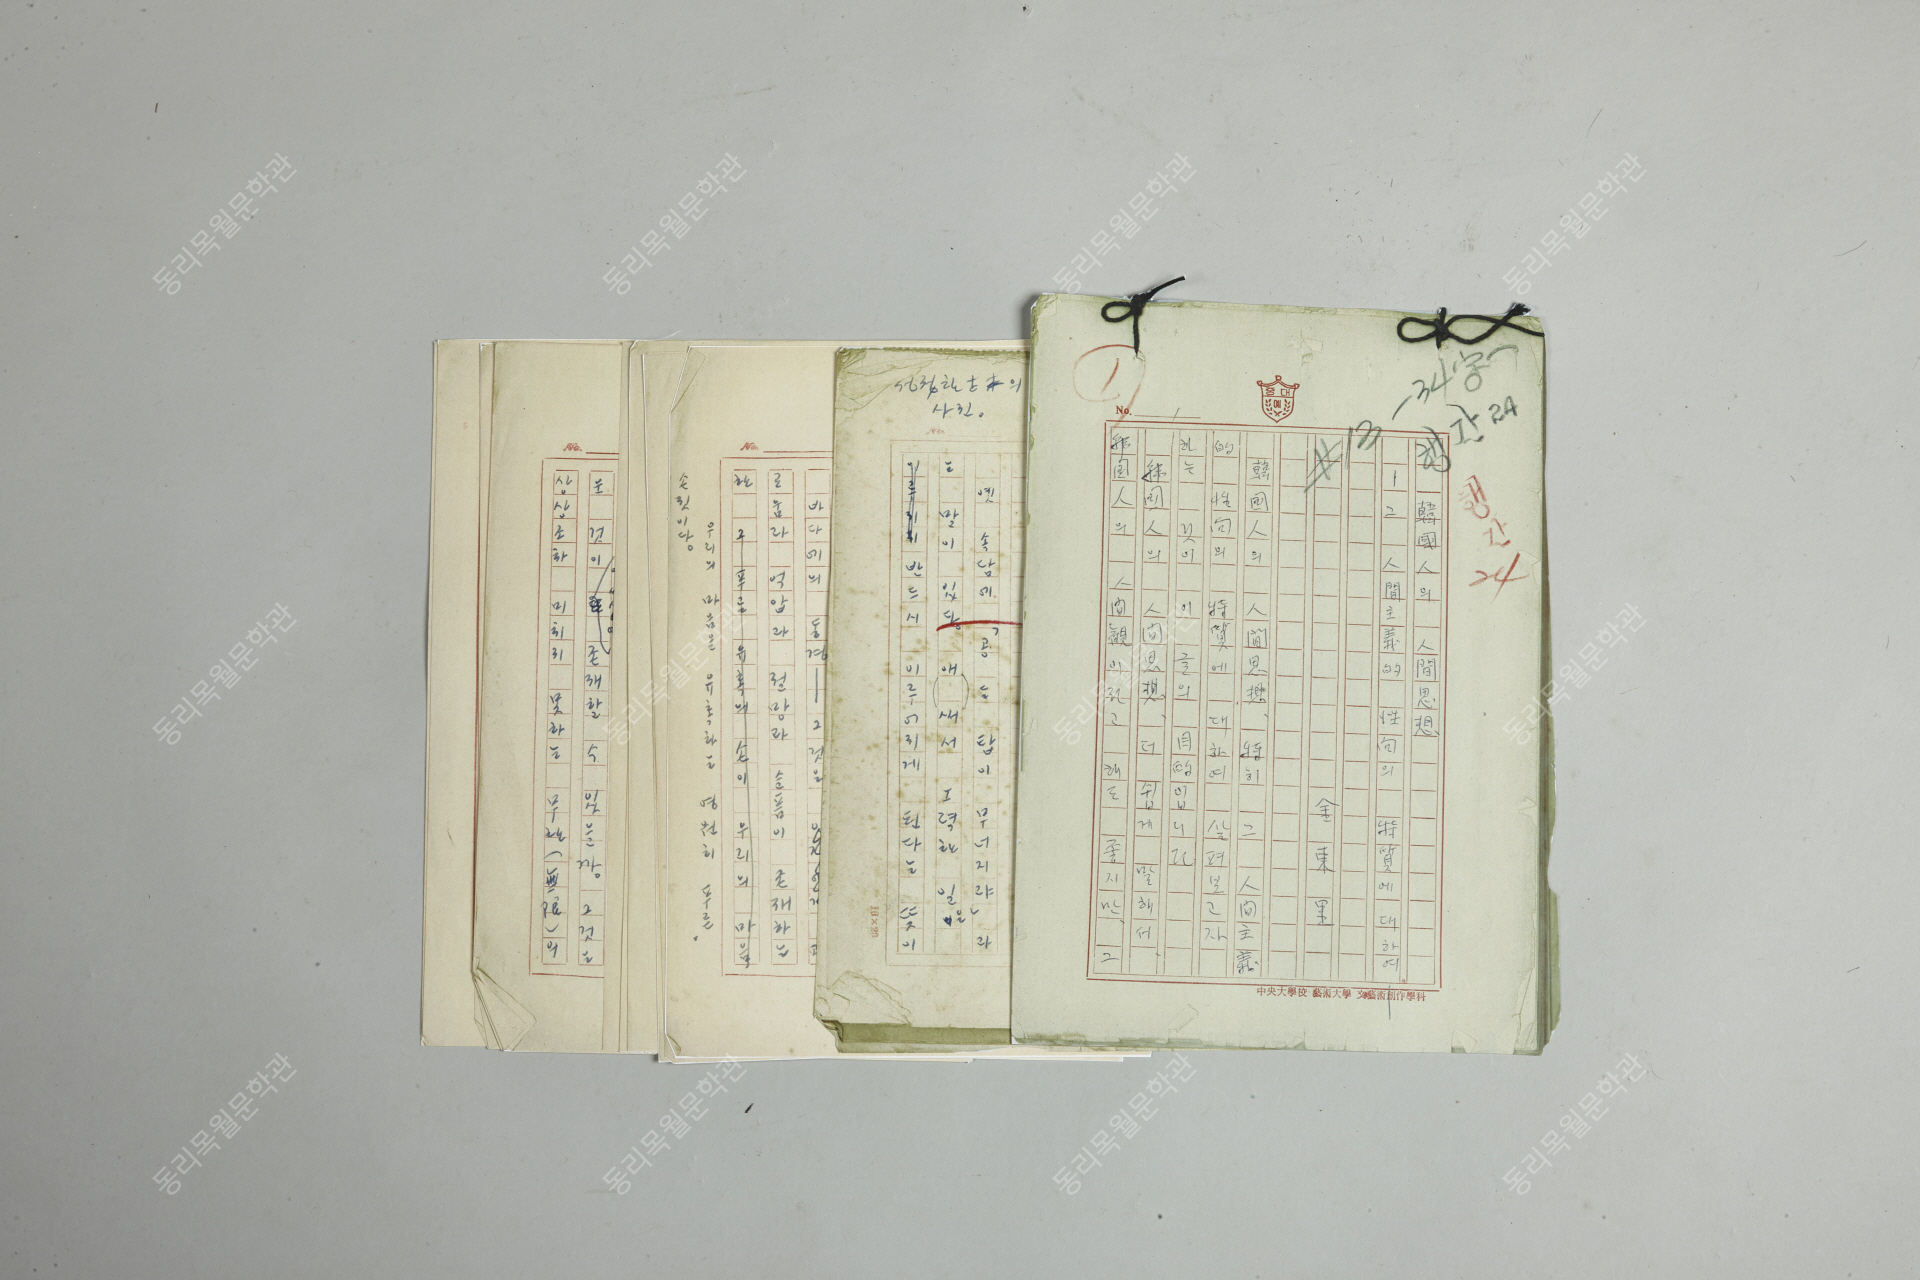 韓國人의 人間思想
ㅣ그 人間主義的 性向의 特質에 대하여
金東里
韓國人의 人間思想, 特히 그 人間主義
的 性向의 特質에 대하여 살펴보고자
하는 것이 이 글의 目的입니다.
韓国人의 人间思想, 더 쉽게 말해서
韓国人의 人间観이라고 해도 좋지만, 그
①
No. 1
중대
예
#13
34
행간 24
행간
24
中央大學校 藝術大學 文藝創作學科
옛 속담에 「공든 탑이 무너지랴」라
는 말이 있다. 애써서 노력한 일은
반드시 이루어지게 된다는 뜻이
18×20
No.
바다에의 동경— 그것은
로움과 억압과 절망과 슬픔이 존재하는
한 그 푸른 유혹의 손이 우리의 마음
우리의 마음을 유혹하는 영원히 푸른
손짓이다.
No.
는 것이 존재할 수 있는가. 그것은
삼삼조차 미치지 못하는 무한(無限)의
동리목월문학관
동리목월문학관
동리목월문학관
동리목월문학관
동리목월문학관
동리목월문학관
동리목월문학관
동리목월문학관
동리목월문학관
동리목월문학관
동리목월문학관
동리목월문학관